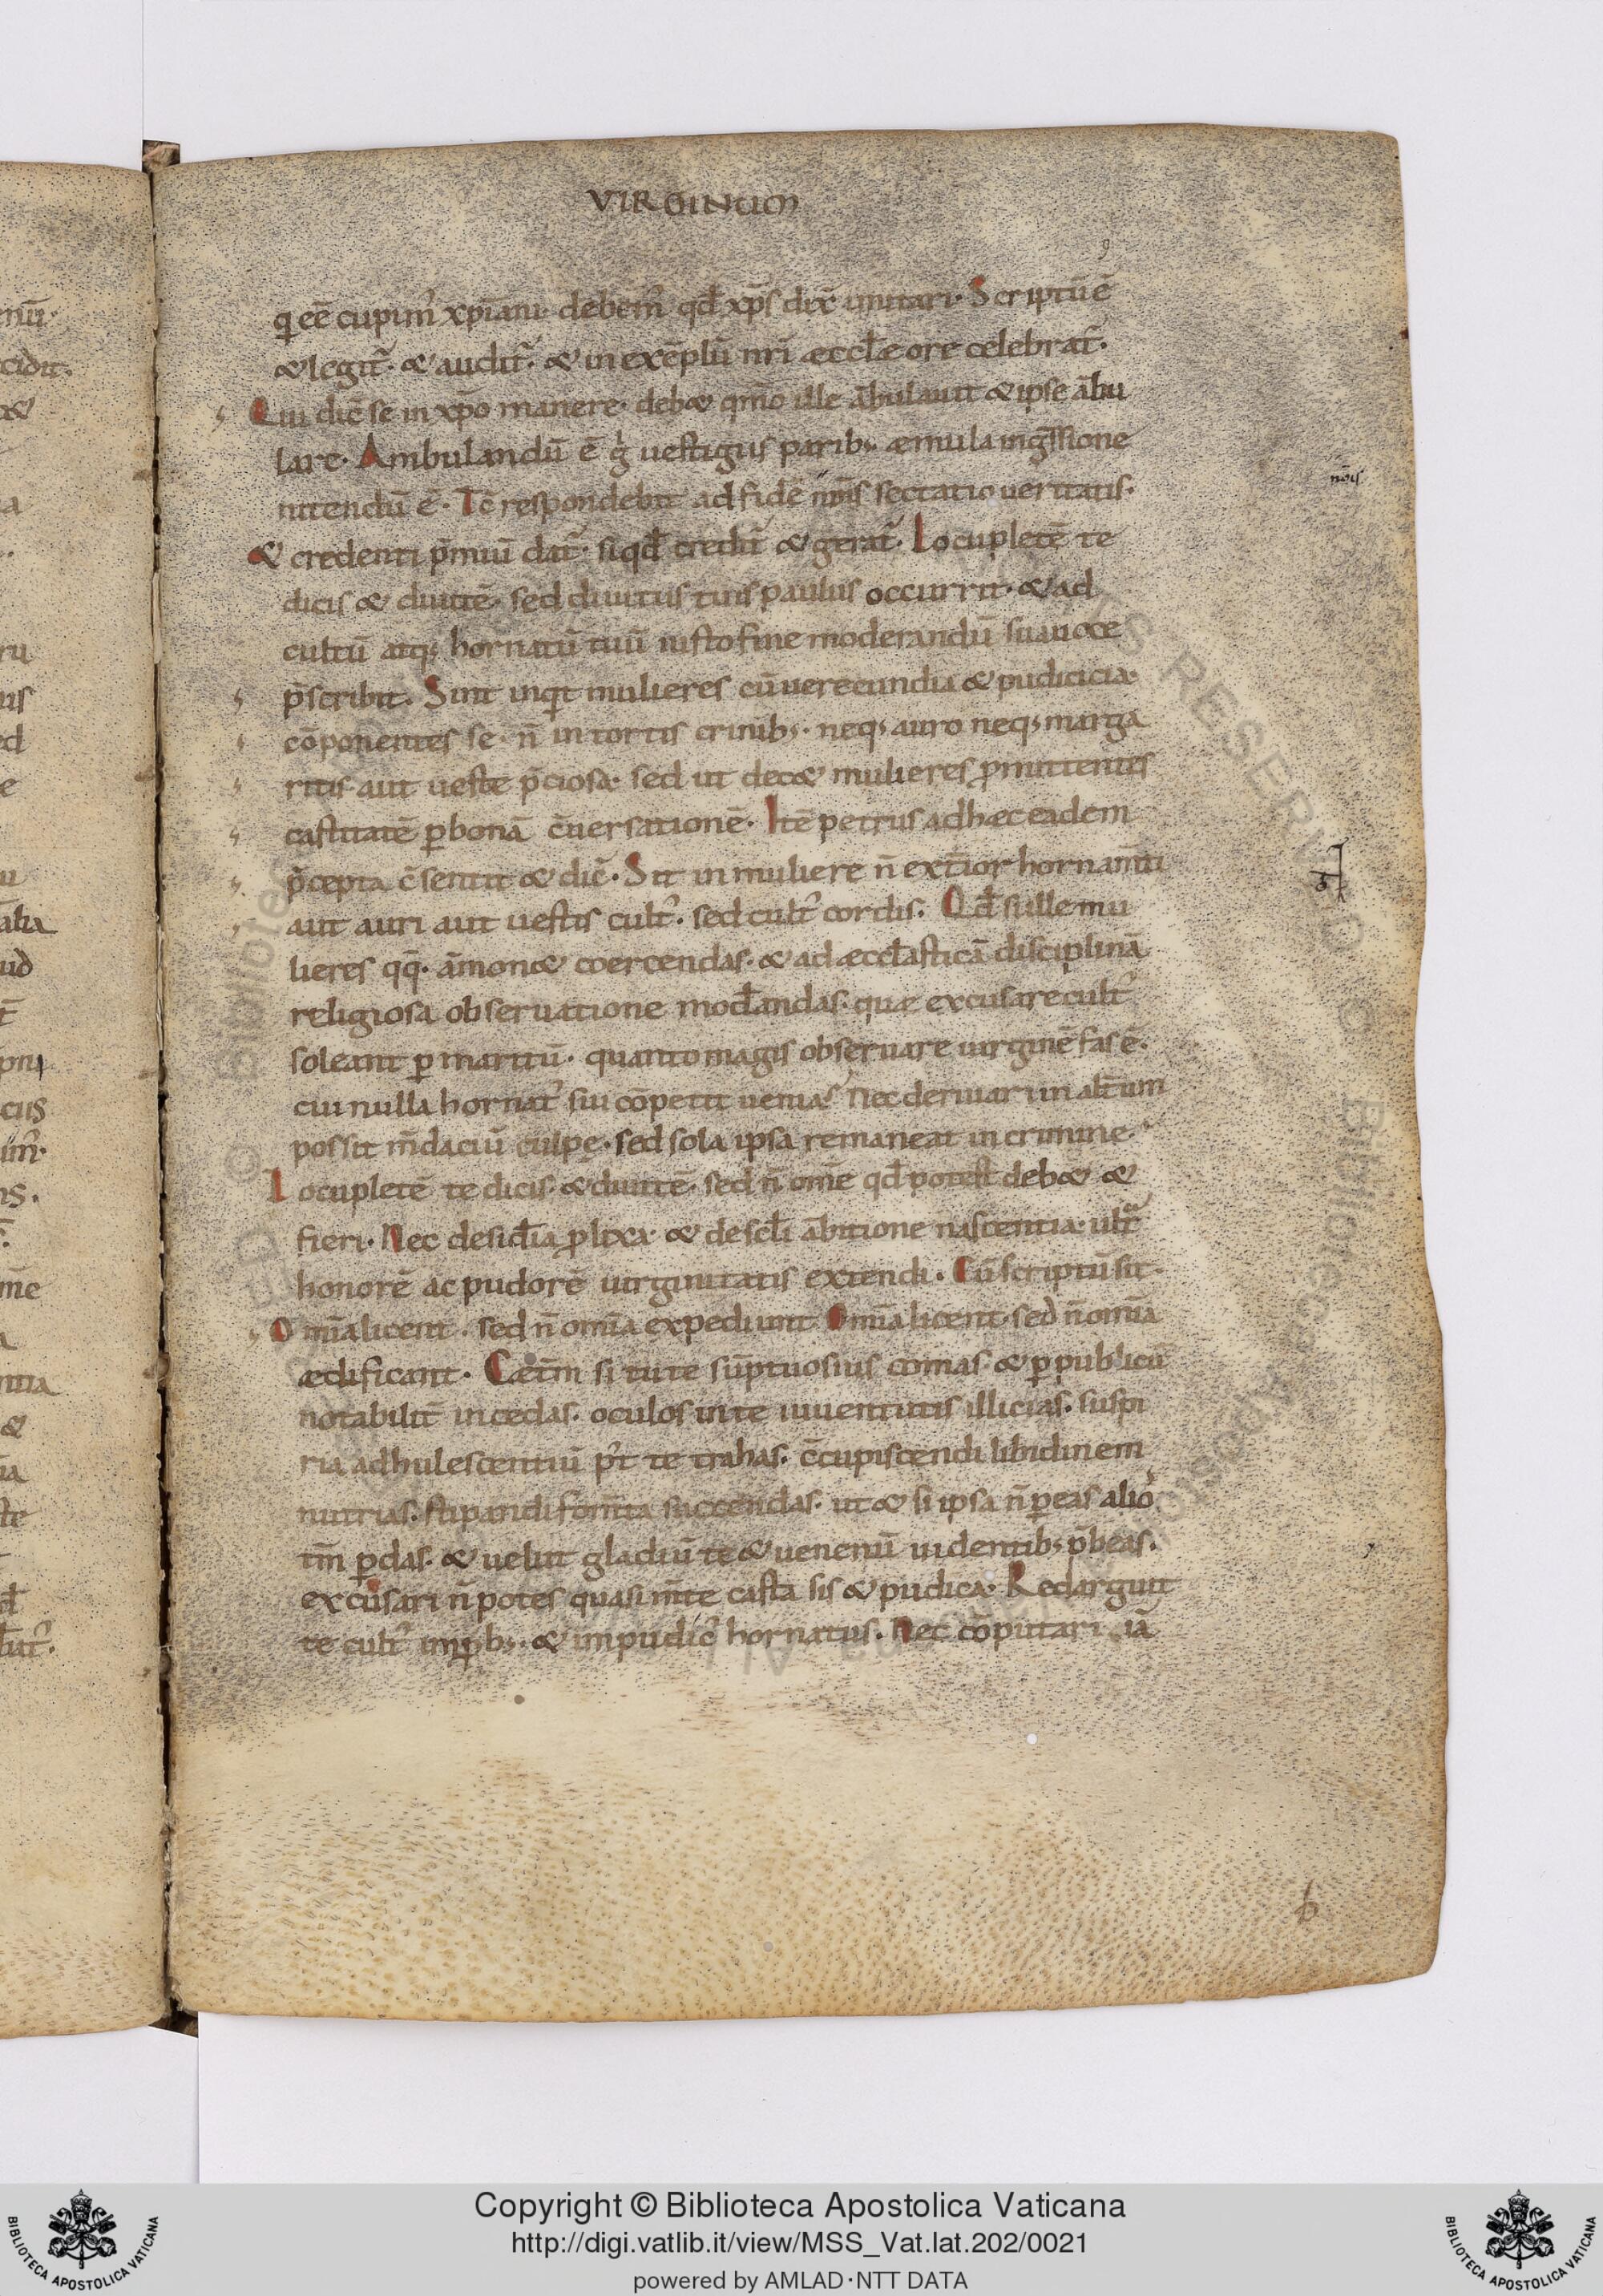 VIRGINUM
9
qui eē cupim᷒ xp̄iani· debem᷒ qd̄ xp̄s dix̄ imitari· Scriptū ē
& legit᷒· & audit᷒· & in exēplū nr̄i æccl̄æ ore celebrat᷒·
Qui dic̄ se in xp̄o manere· deb& qm̄o ille ābulauit & ipse ābu
lare· Ambulandū ē gͥ uestigiis parib;· æmula ings̄sione
nitendū ē· Tc̄ respondebit ad fidē nom̄is sectatio ueritatis·
nōis
& credenti p̄miū dat᷒· si qd̄ credit᷒ & gerat᷒· Locupletē te
dicis & diuitē· sed diuitiis tuis paulus occurrit· & ad
cultū atq; hornatū tuū iusto fine moderandū sua uoce
p̄scribit· Sint inqͥt mulieres cū uerecundia & pudicicia·
cōponentes se· n̄ in tortis crinib;· neq; auro neq; marga
ritis· aut ueste p̄ciosa· sed ut dec& mulieres ꝓmittentes
castitatē ꝑ bonā c̄uersationē· Itē petrus ad hæc eadem
p̄cepta c̄sentit & dic̄· Sit in muliere n̄ ext̄ior hornam̄ti
aut auri aut uestis cult᷒· sed cult᷒ cordis· Qd̄ si ille mu
lieres qq̄· āmon& coercendas· & ad æccl̄asticā disciplinā
religiosa obseruatione mod̄andas· quæ excusare cult᷒
soleant ꝑ maritū· quanto magis obseruare uirginē fas ē·
cui nulla hornat᷒ sui cōpetit uenia? Nec deriuari in alt̄um
possit m̄daciū culpę· sed sola ipsa remaneat in crimine·
Locupletē te dicis· & diuitē· sed n̄ om̄e qd̄ potest deb& &
fieri· Nec desid̄ia ꝓlixa· & de scl̄i ābitione nascentia· ultͣ
honorē ac pudorē uirginitatis extendi· Cū scriptū sit·
Om̄ia licent· sed n̄ om̄ia expediunt· Om̄ia licent· sed n̄ om̄ia
ædificant· Cæt̄m si tu te sūptuosius comas· & ꝑ publicū
notabilit̄ incedas· oculos in te iuuentutis illicias· suspi
ria adhulescentiū p᷒t te trahas· c̄cupiscendi libidinem
nutrias· stipandi fom̄ta succendas· ut & si ipsa n̄ ꝑeas alio᷒
tm̄ ꝑdas· & uelut gladiū te & uenenū uidentib; p̄beas·
excusari n̄ potes quasi m̄te casta sis & pudica· Redarguit
te cult᷒ imꝓb;· & impudic᷒ hornatus· Nec cōputari iā
b
Copyright © Biblioteca Apostolica Vaticana
http://digi.vatlib.it/view/MSS_Vat.lat.202/0021
powered by AMLAD·NTT DATA
BIBLIOTECA APOSTOLICA VATICANA
BIBLIOTECA APOSTOLICA VATICANA